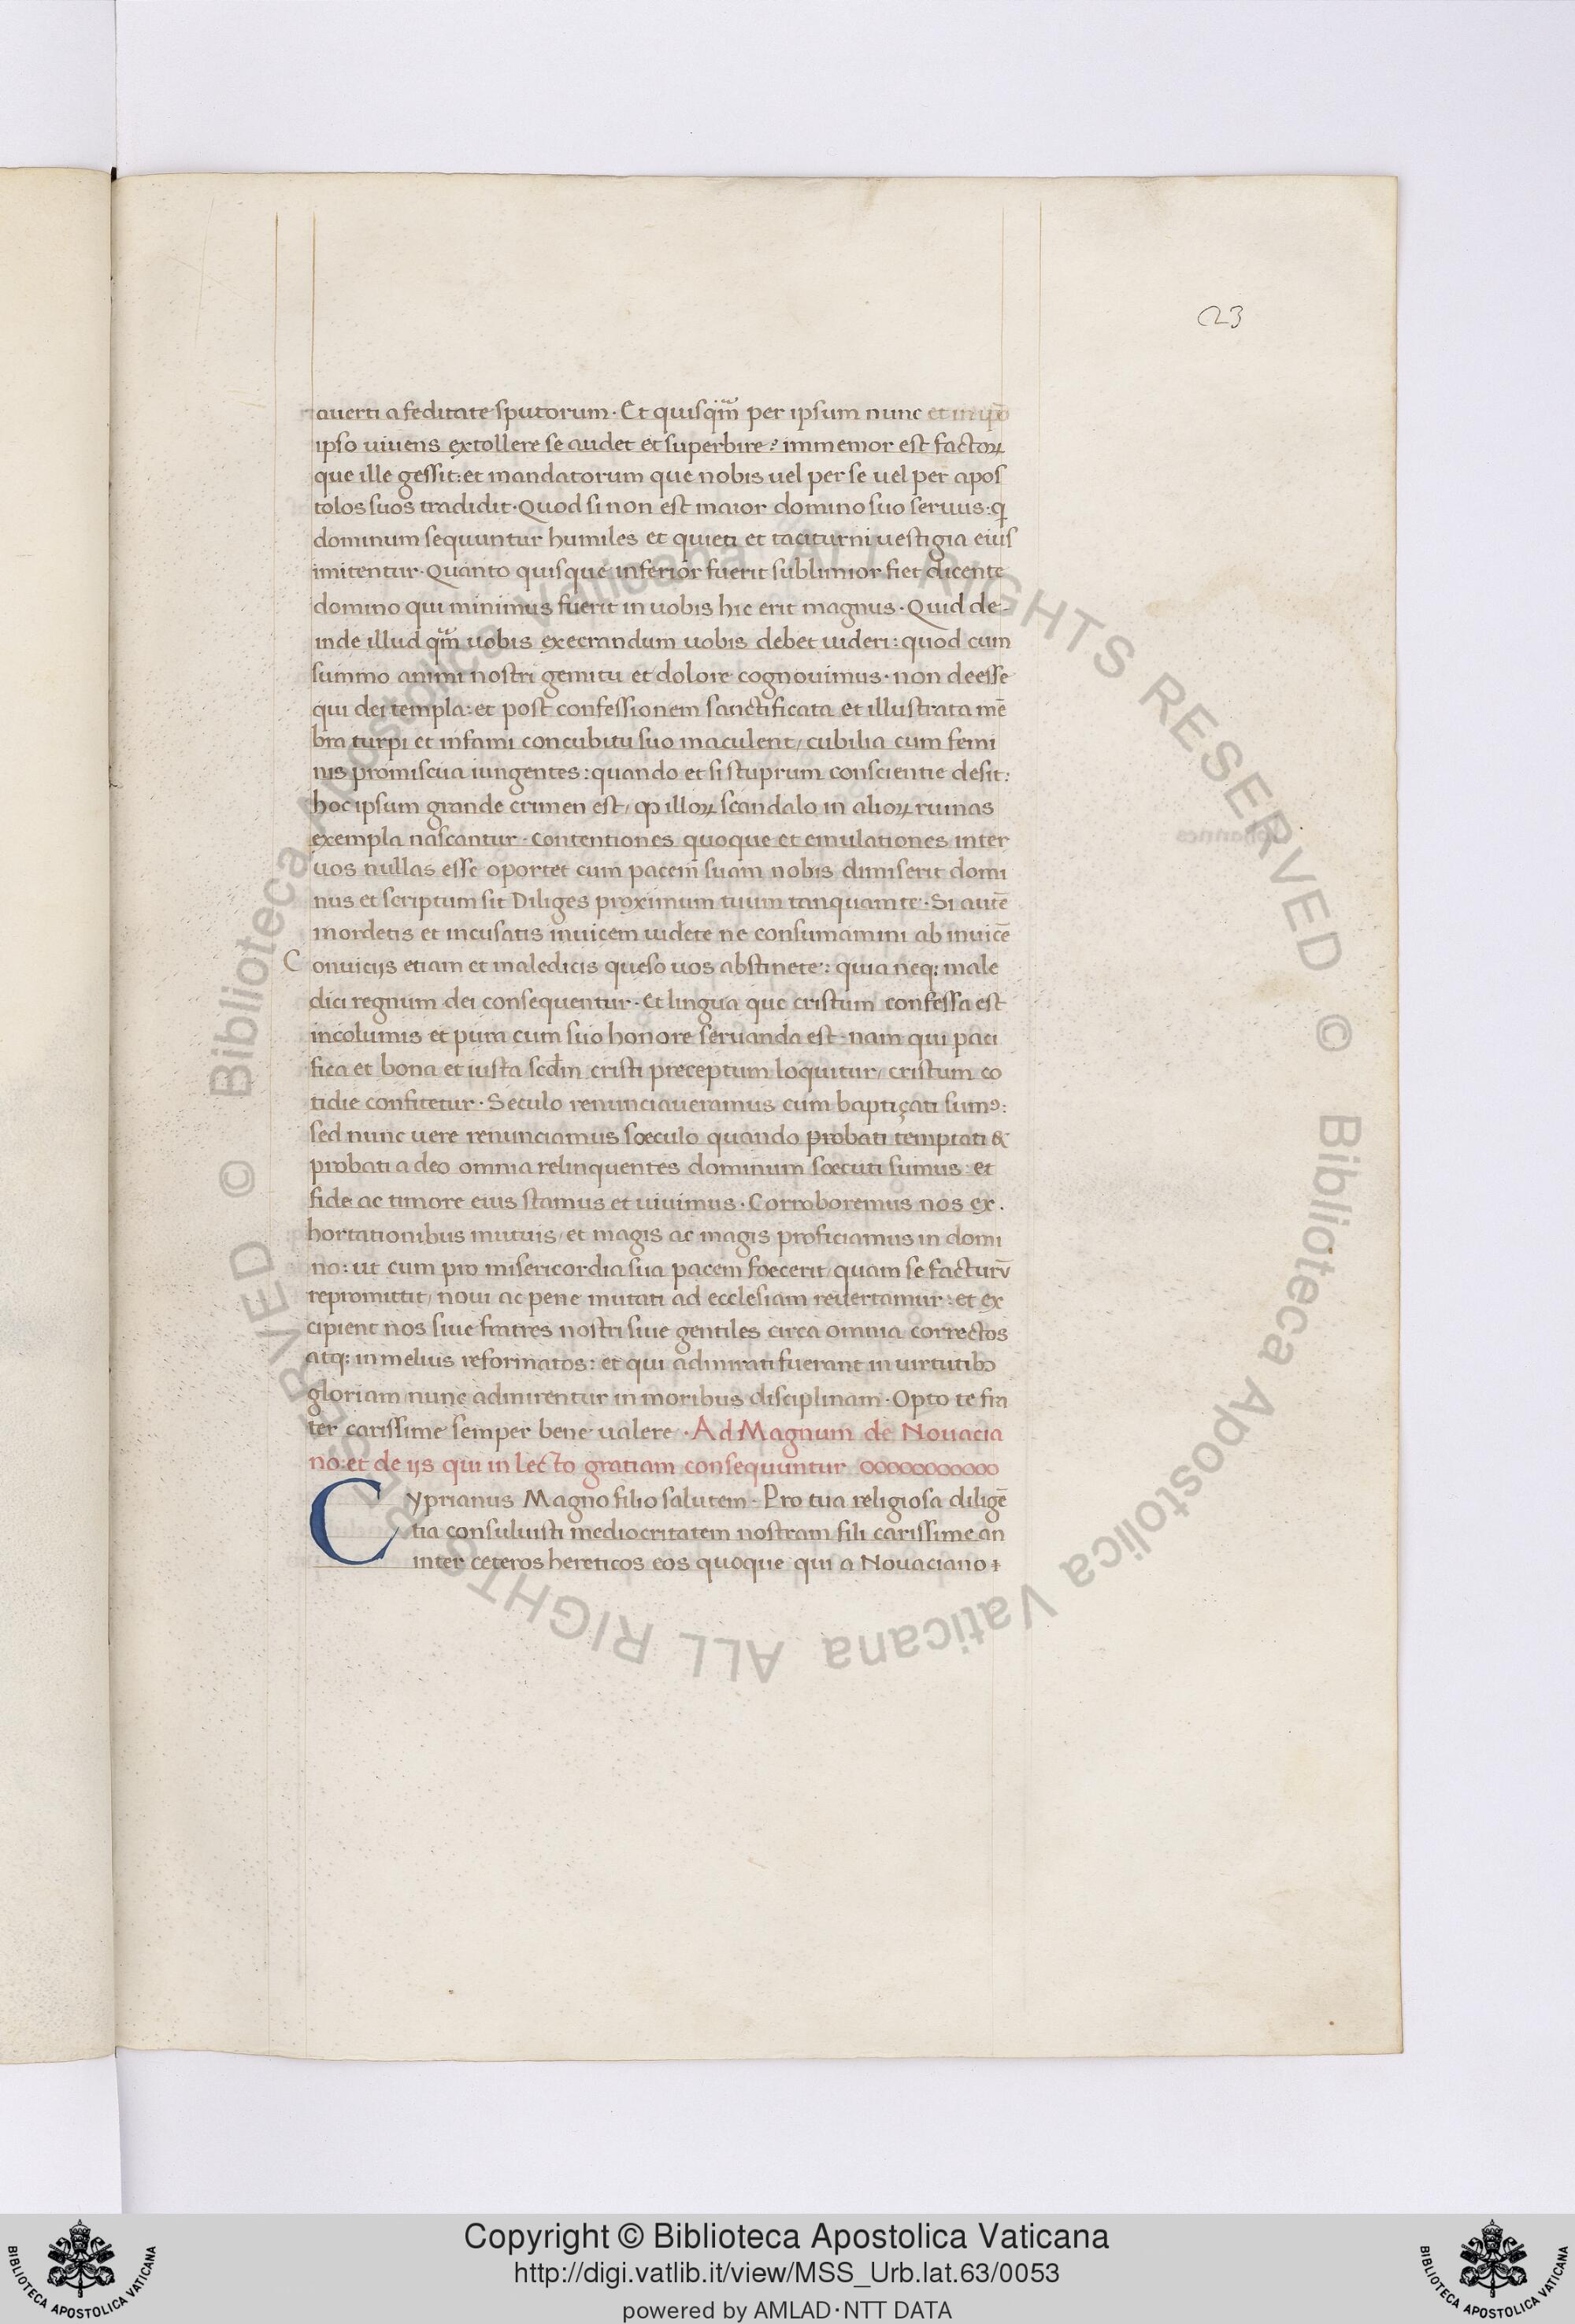 23
auerti a feditate sputorum · Et quisq̃m per ipsum nunc et in ip̃o
ipso uiuens extollere se audet et superbire? immemor est factoꝝ
que ille gessit: et mandatorum que nobis uel per se uel per apos
tolos suos tradidit · Quod si non est maior domino suo seruus: q
dominum sequuntur humiles et quieti et taciturni uestigia eius
imitentur · Quanto quisque inferior fuerit sublimior fiet dicente
domino qui minimus fuerit in uobis hic erit magnus · Quid de-
inde illud q̃m uobis execrandum uobis debet uideri: quod cum
summo animi nostri gemitu et dolore cognouimus · non deesse
qui dei templa: et post confessionem sanctificata et illustrata mē
bra turpi et infami concubitu suo maculent, cubilia cum femi
nis promiscua iungentes: quando et si stuprum conscientie desit:
hoc ipsum grande crimen est, ꝙ illoꝝ scandalo in alioꝝ ruinas
exempla nascantur · Contentiones quoque et emulationes inter
uos nullas esse oportet cum pacem suam nobis dimiserit domi
nus et scriptum sit Diliges proximum tuum tanquam te · Si autē
mordetis et incusatis inuicem uidete ne consumamini ab inuicē
Conuicijs etiam et maledicis queso uos abstinete: quia neq; male
dici regnum dei consequentur · Et lingua que cristum confessa est
incolumis et pura cum suo honore seruanda est · nam qui paci
fica et bona et iusta scd̄m cristi preceptum loquitur, cristum co
tidie confitetur · Seculo renunciaueramus cum baptiçati sumꝰ:
sed nunc uere renunciamus sœculo quando probati temptati &
probati a deo omnia relinquentes dominum sœcuti sumus: et
fide ac timore eius stamus et uiuimus · Corroboremus nos ex.
hortationibus mutuis, et magis ac magis proficiamus in domi
no: ut cum pro misericordia sua pacem foecerit, quam se facturū
repromittit, noui ac pene mutati ad ecclesiam reuertamur: et ex
cipient nos siue fratres nostri siue gentiles circa omnia correctos
atq; in melius reformatos: et qui admirati fuerant in uirtutibꝰ
gloriam nunc admirentur in moribus disciplinam · Opto te fra
ter carissime semper bene ualere · Ad Magnum de Nouacia
no: et de ijs qui in lecto gratiam consequuntur ooooooooooo
Cyprianus Magno filio salutem · Pro tua religiosa diligē
tia consuluisti mediocritatem nostram fili carissime an
inter ceteros hereticos eos quoque qui a Nouaciano
Copyright © Biblioteca Apostolica Vaticana
http://digi.vatlib.it/view/MSS_Urb.lat.63/0053
powered by AMLAD·NTT DATA
BIBLIOTECA APOSTOLICA VATICANA
BIBLIOTECA APOSTOLICA VATICANA
© Biblioteca Apostolica Vaticana ALL RIGHTS RESERVED © Biblioteca Apostolica Vaticana ALL RIGHTS RESERVED